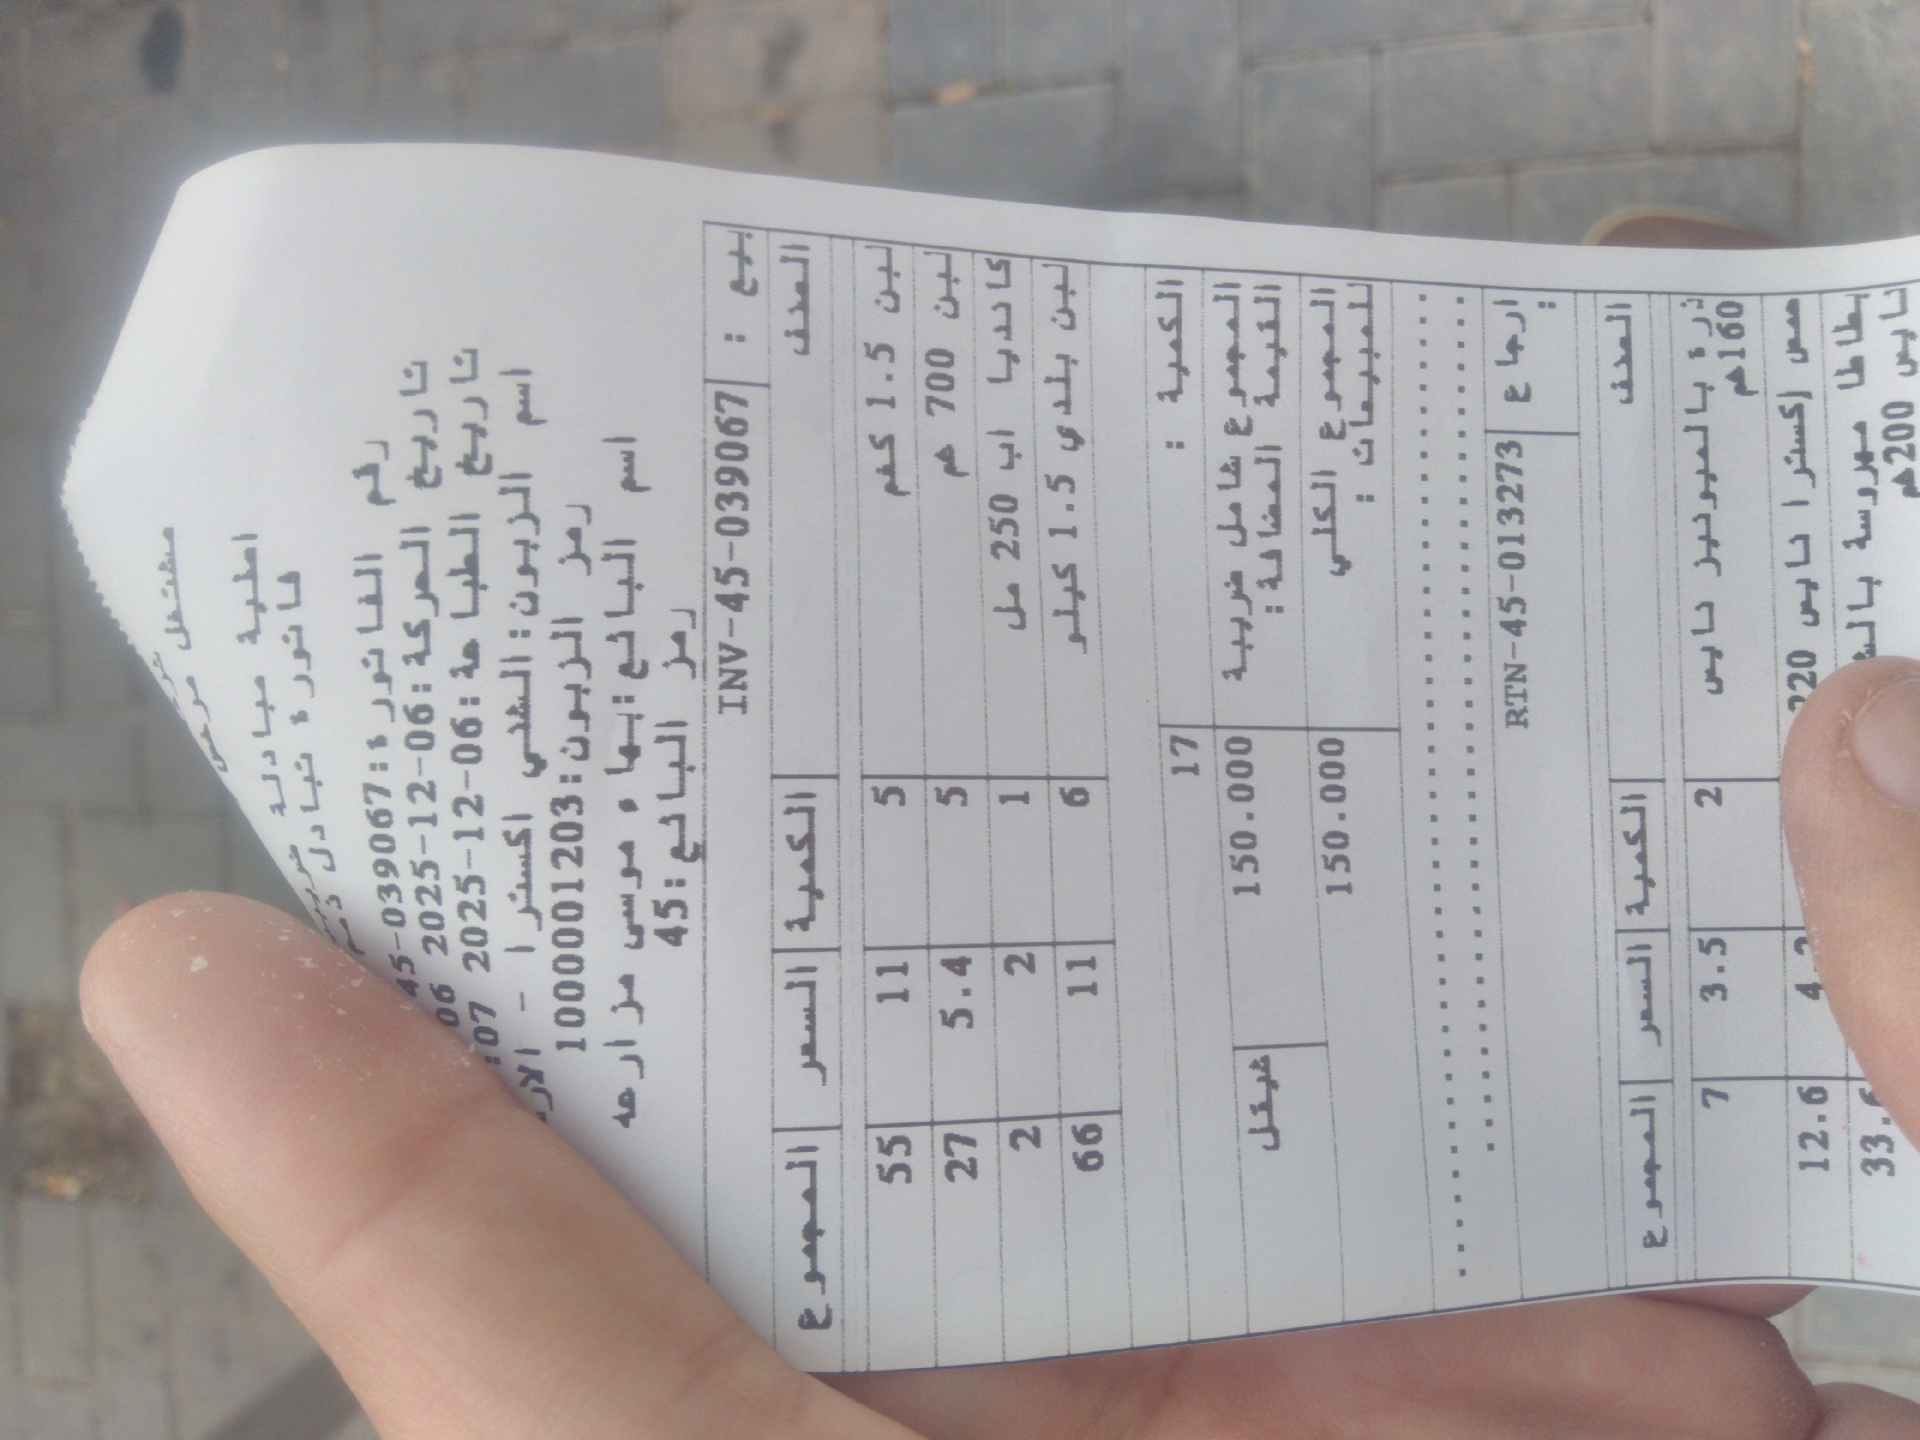 مشتغل مرخص
اطلية مبادلة ضريبية
فاتورة تبادل ذمم
رقم الفاتورة: 45-039067
تاريخ الحركة: 2025-12-06 06
تاريخ الطباعة: 2025-12-06 07:
اسم الزبون: الشني اكسترا - الار
رمز الزبون: 1000001203
اسم البائع: بهاء موسى مزارعه
رمز البائع: 45
بيع : INV-45-039067
الصنف الكمية السعر المجموع
لبن 1.5 كغم 5 11 55
لبن 700 غم 5 5.4 27
كانديا اب 250 مل 1 2 2
لبن بلدي 1.5 كيلو 6 11 66
الكمية : 17
المجموع شامل ضريبة 150.000 شيقل
القيمة المضافة :
المجموع الكلي 150.000
للمبيعات :
ارجاع RTN-45-013273
:
الصنف الكمية السعر المجموع
ذرة بالميونيز نايس 2 3.5 7
160غم
حمص إكسترا نايس 220 12.6
بطاطا مهروسة
نايس 200غم